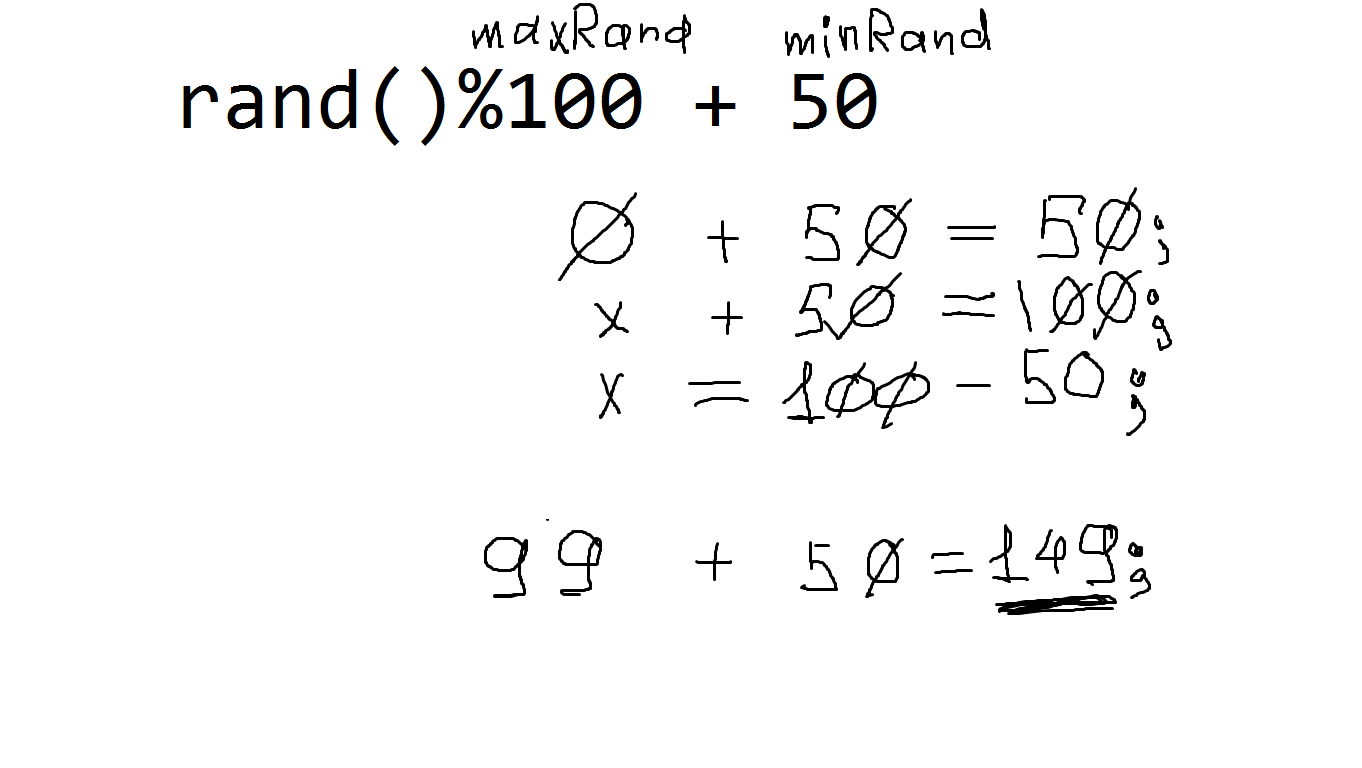 maxRand minRand
rand()%100 + 50
0 + 50 = 50;
x + 50 = 100;
x = 100 - 50;
99 + 50 = 149;